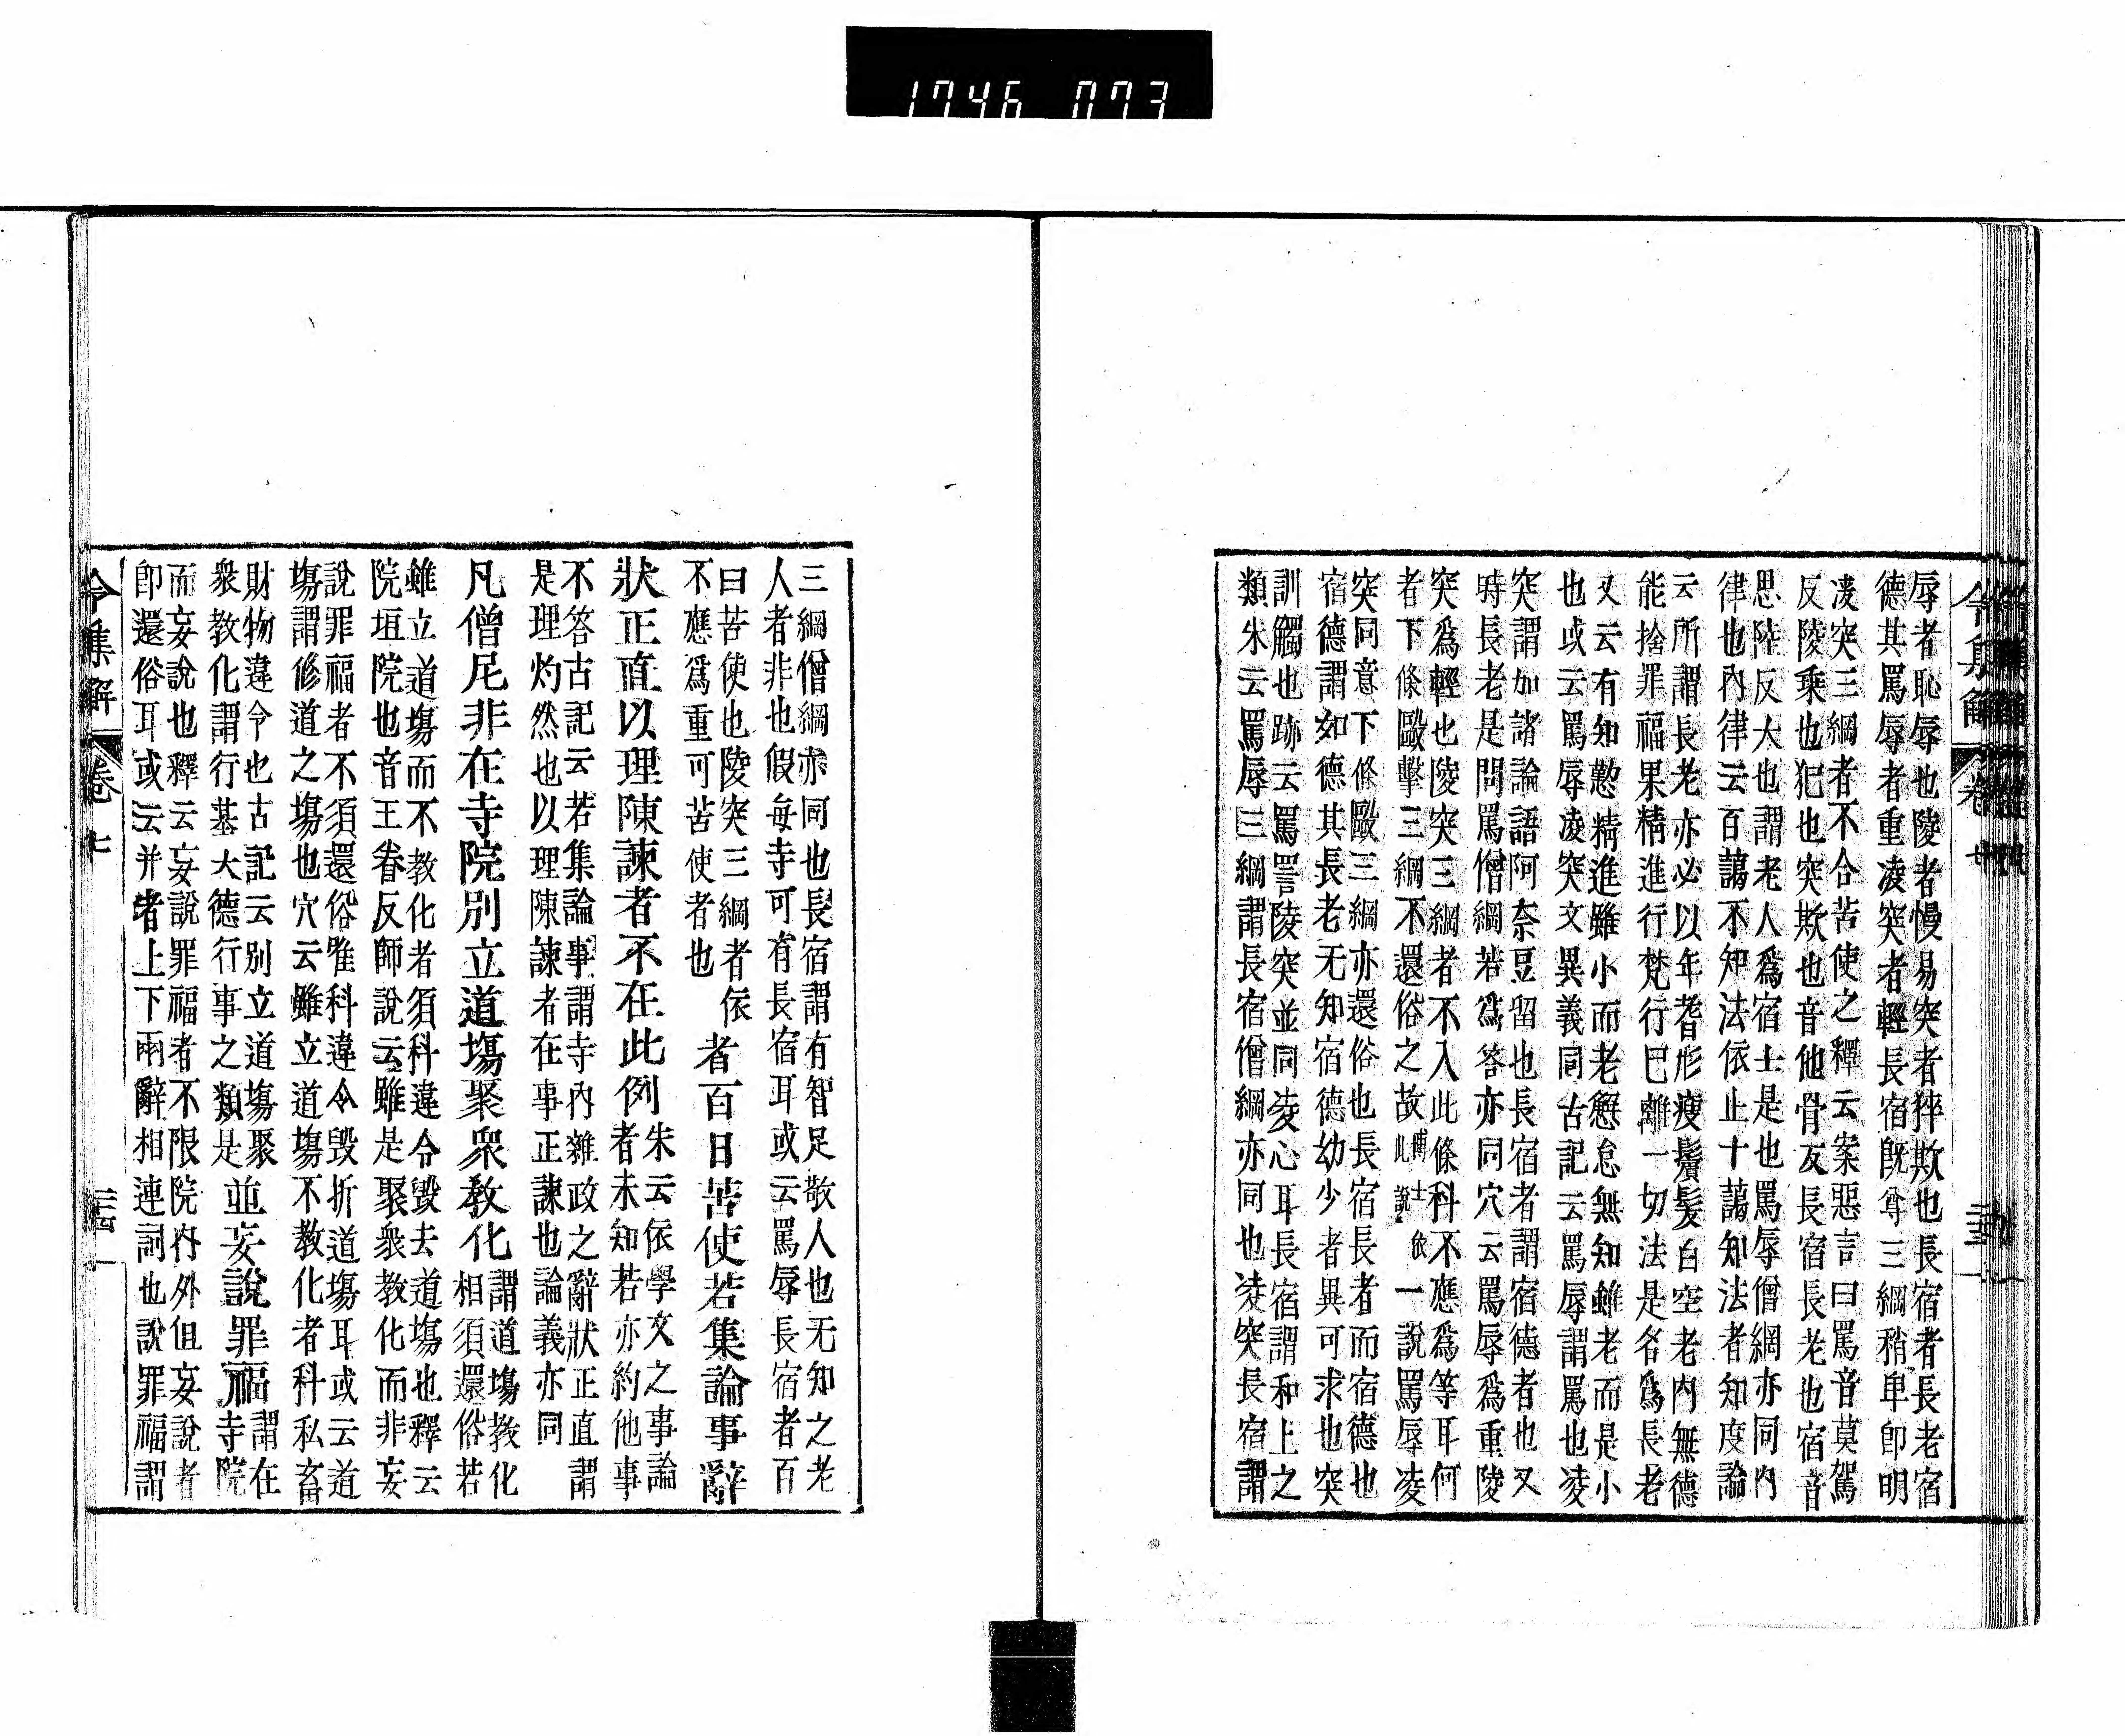 1746 073
辱者恥辱也陵者慢易突者猝欺也長宿者長老宿
德其罵辱者重凌突者輕長宿既尊三綱稍卑卽明
凌突三綱者不合苦使之釋云案惡言曰罵音莫駕
反陵乗也犯也突欺也音他骨反長宿長老也宿音
思陸反大也謂老人爲宿士是也罵辱僧網亦同内
律也内律云百蕅不知法依止十蕅知法者知度論
云所謂長老亦必以年耆形瘦鬚髪白空老内無德
能捨罪福果精進行梵行巳離一切法是名爲長老
又云有知懃精進雖小而老懈怠無知雖老而是小
也或云罵辱凌突文異義同古記云罵辱謂罵也凌
突謂加諸論語阿奈豆留也長宿者謂宿德者也又
時長老是問罵僧綱若爲答亦同穴云罵辱爲重陵
突爲輕也陵突三綱者不入此條科不應爲等耳何
者下條毆擊三綱不還俗之故博士此說依一説罵辱凌
突同意下條毆三綱亦還俗也長宿長者而宿德也
宿德謂如德其長老无知宿德幼少者異可求也突
訓觸也跡云罵詈陵突並同凌心耳長宿謂和上之
類朱云罵辱三綱謂長宿僧綱亦同也凌突長宿謂
三綱僧綱亦同也長宿謂有智足敬人也无知之老
人者非也假每寺可有長宿耳或云罵辱長宿者百
日苦使也陵突三綱者依
不應爲重可苦使者也
者百日苦使若集論事辭
狀正直以理陳諫者不在此例
朱云依學文之事論
者未知若亦約他事
不答古記云若集論事謂寺内雜政之辭狀正直謂
是理灼然也以理陳諫者在事正諫也論義亦同
凡僧尼非在寺院別立道塲聚衆教化
謂道塲教化
相須還俗若
雖立道塲而不教化者須科違令毀去道塲也釋云
院垣院也音王眷反師説云雖是聚衆教化而非妄
説罪福者不須還俗唯科違令毀折道塲耳或云道
塲謂修道之塲也穴云雖立道塲不教化者科私畜
財物違令也古記云別立道塲聚
衆教化謂行基大德行事之類是
並妄說罪福
謂在
寺院
而妄說也釋云妄說罪福者不限院内外但妄說者
卽還俗耳或云并者上下兩辭相連詞也說罪福謂
令集解 卷七